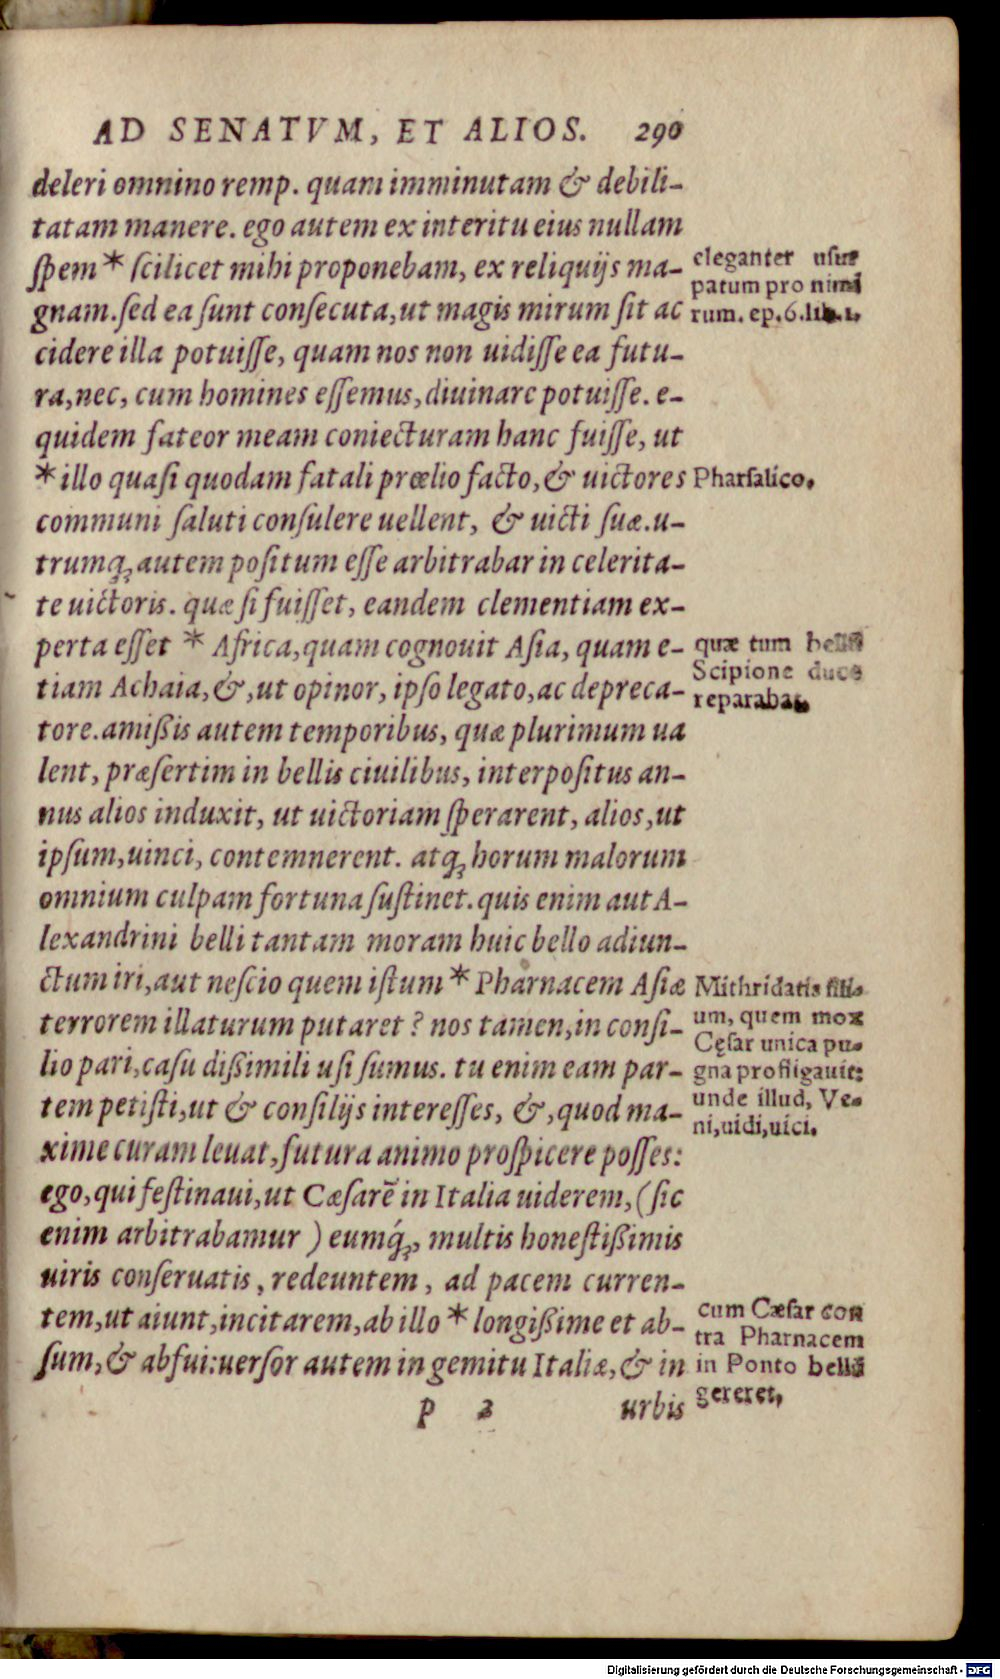 AD SENATVM, ET ALIOS. 290
deleri omnino remp. quam imminutam & debili-
tatam manere. ego autem ex interitu eius nullam
spem * scilicet mihi proponebam, ex reliquijs ma-
gnam. sed ea sunt consecuta, ut magis mirum sit ac
cidere illa potuisse, quam nos non uidisse ea futu-
ra, nec, cum homines essemus, diuinare potuisse. e-
quidem fateor meam coniecturam hanc fuisse, ut
* illo quasi quodam fatali prœlio facto, & uictores
communi saluti consulere uellent, & uicti suæ. u-
trumq; autem positum esse arbitrabar in celerita-
te uictoris. quæ si fuisset, eandem clementiam ex-
perta esset * Africa, quam cognouit Asia, quam e-
tiam Achaia, &, ut opinor, ipso legato, ac depreca-
tore. amißis autem temporibus, quæ plurimum ua
lent, præsertim in bellis ciuilibus, interpositus an-
nus alios induxit, ut uictoriam sperarent, alios, ut
ipsum, uinci, contemnerent. atq; horum malorum
omnium culpam fortuna sustinet. quis enim aut A-
lexandrini belli tantam moram huic bello adiun-
ctum iri, aut nescio quem istum * Pharnacem Asiæ
terrorem illaturum putaret? nos tamen, in consi-
lio pari, casu dißimili usi sumus. tu enim eam par-
tem petisti, ut & consilijs interesses, &, quod ma-
xime curam leuat, futura animo prospicere posses:
ego, qui festinaui, ut Cæsarē in Italia uiderem, (sic
enim arbitrabamur) eumq́;, multis honestißimis
uiris conseruatis, redeuntem, ad pacem curren-
tem, ut aiunt, incitarem, ab illo * longißime et ab-
sum, & abfui: uersor autem in gemitu Italiæ, & in
P 2 urbis
eleganter usur
patum pro nimi
rum. ep. 6. lib. 1.
Pharsalico.
quæ tum bellū
Scipione duce
reparabat.
Mithridatis fili-
um, quem mox
Cęsar unica pu-
gna profligauit:
unde illud, Ve-
ni, uidi, uici.
cum Cæsar con
tra Pharnacem
in Ponto bellū
gereret.
Digitalisierung gefördert durch die Deutsche Forschungsgemeinschaft - DFG